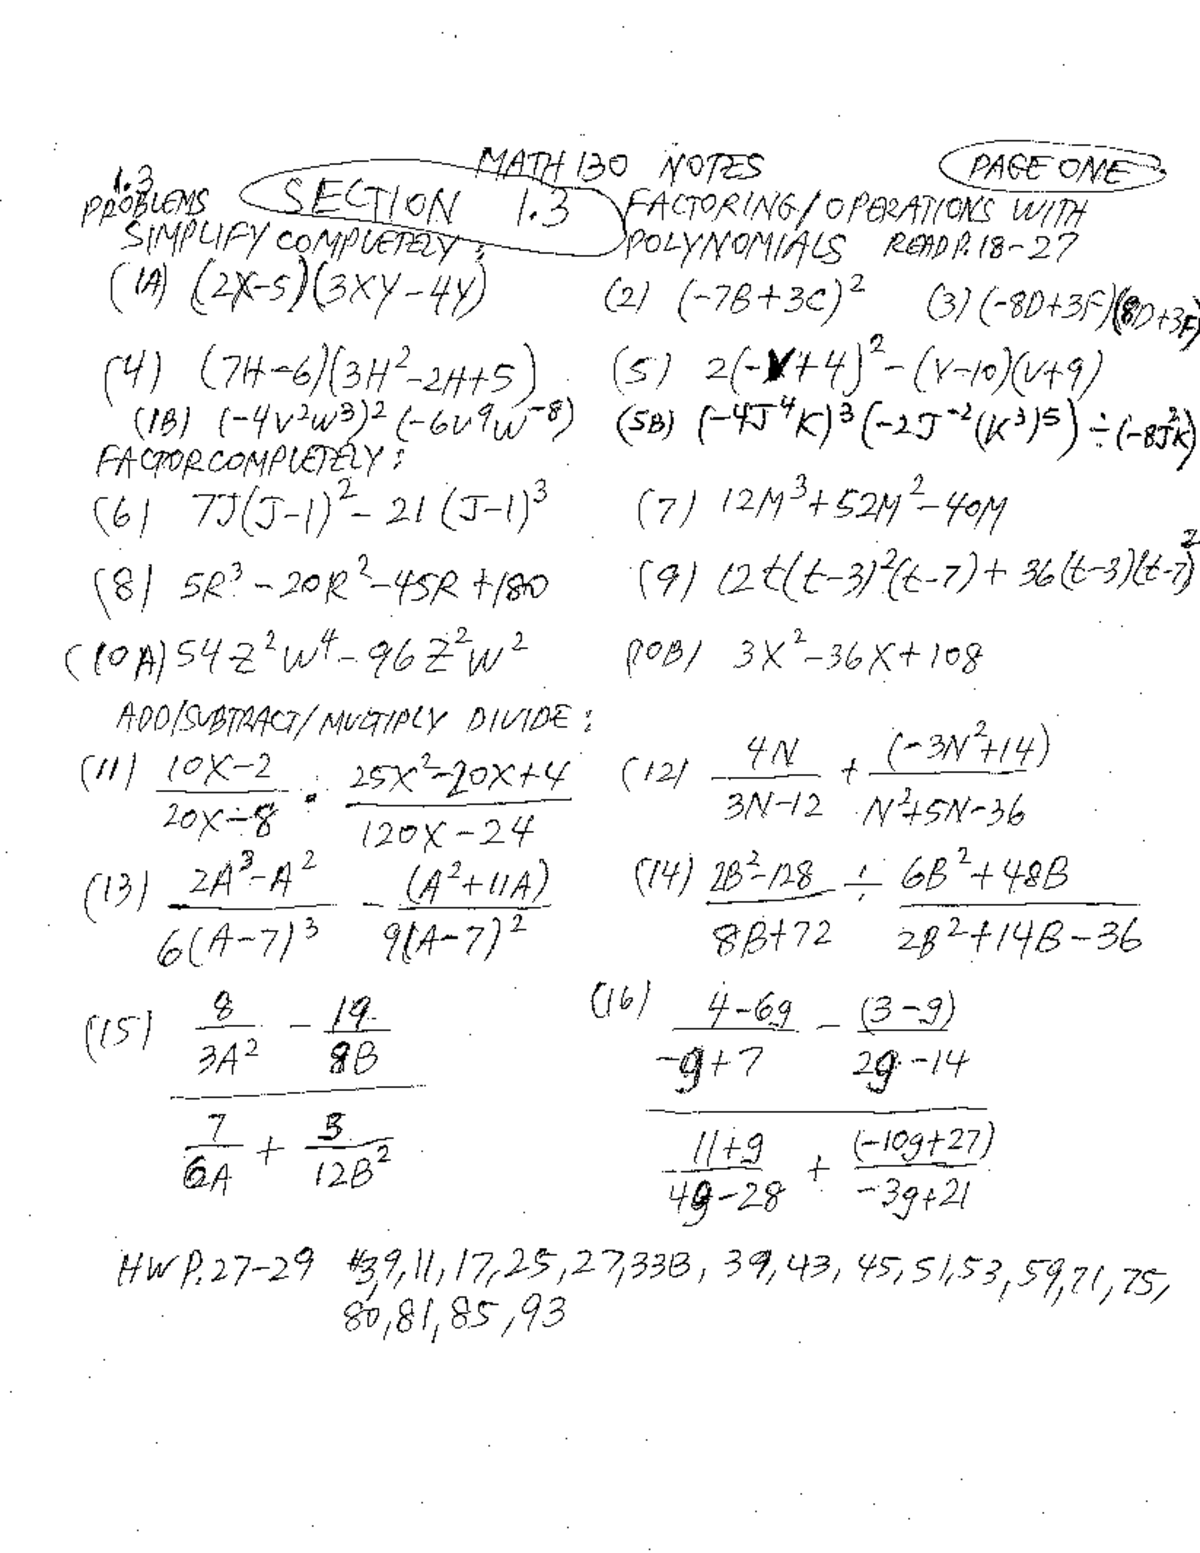 MATH 130 NOTES PAGE ONE
1.3 PROBLEMS SECTION 1.3 FACTORING/OPERATIONS WITH
SIMPLIFY COMPLETELY: POLYNOMIALS READ P. 18-27
(1A) (2X-5)(3XY-4Y) (2) (-7B+3C)² (3) (-8D+3F)(8D+3F)
(4) (7H-6)(3H²-2H+5) (5) 2(-V+4)²-(V-10)(V+9)
(1B) (-4V²W³)²(-6V⁹W⁻⁸) (5B) (-4J⁴K)³(-2J⁻²(K³)⁵)÷(-8J²K)
FACTOR COMPLETELY:
(6) 7J(J-1)²-21(J-1)³ (7) 12M³+52M²-40M
(8) 5R³-20R²-45R+180 (9) 12t(t-3)²(t-7)+36(t-3)(t-7)²
(10A) 54Z²W⁴-96Z²W² (10B) 3X²-36X+108
ADD/SUBTRACT/MULTIPLY DIVIDE:
(11) 10X-2 / 20X-8 · 25X²-20X+4 / 120X-24 (12) 4N / 3N-12 + (-3N²+14) / N²+5N-36
(13) 2A³-A² / 6(A-7)³ - (A²+11A) / 9(A-7)² (14) 2B²-128 / 8B+72 ÷ 6B²+48B / 2B²+14B-36
(15) 8 / 3A² - 19 / 8B (16) 4-6g / -g+7 - (3-g) / 2g-14
7 / 6A + 3 / 12B² 11+g / 4g-28 + (-10g+27) / -3g+21
HW P. 27-29 #3,9,11,17,25,27,33B, 39,43, 45,51,53,59,71,75,
80,81,85,93